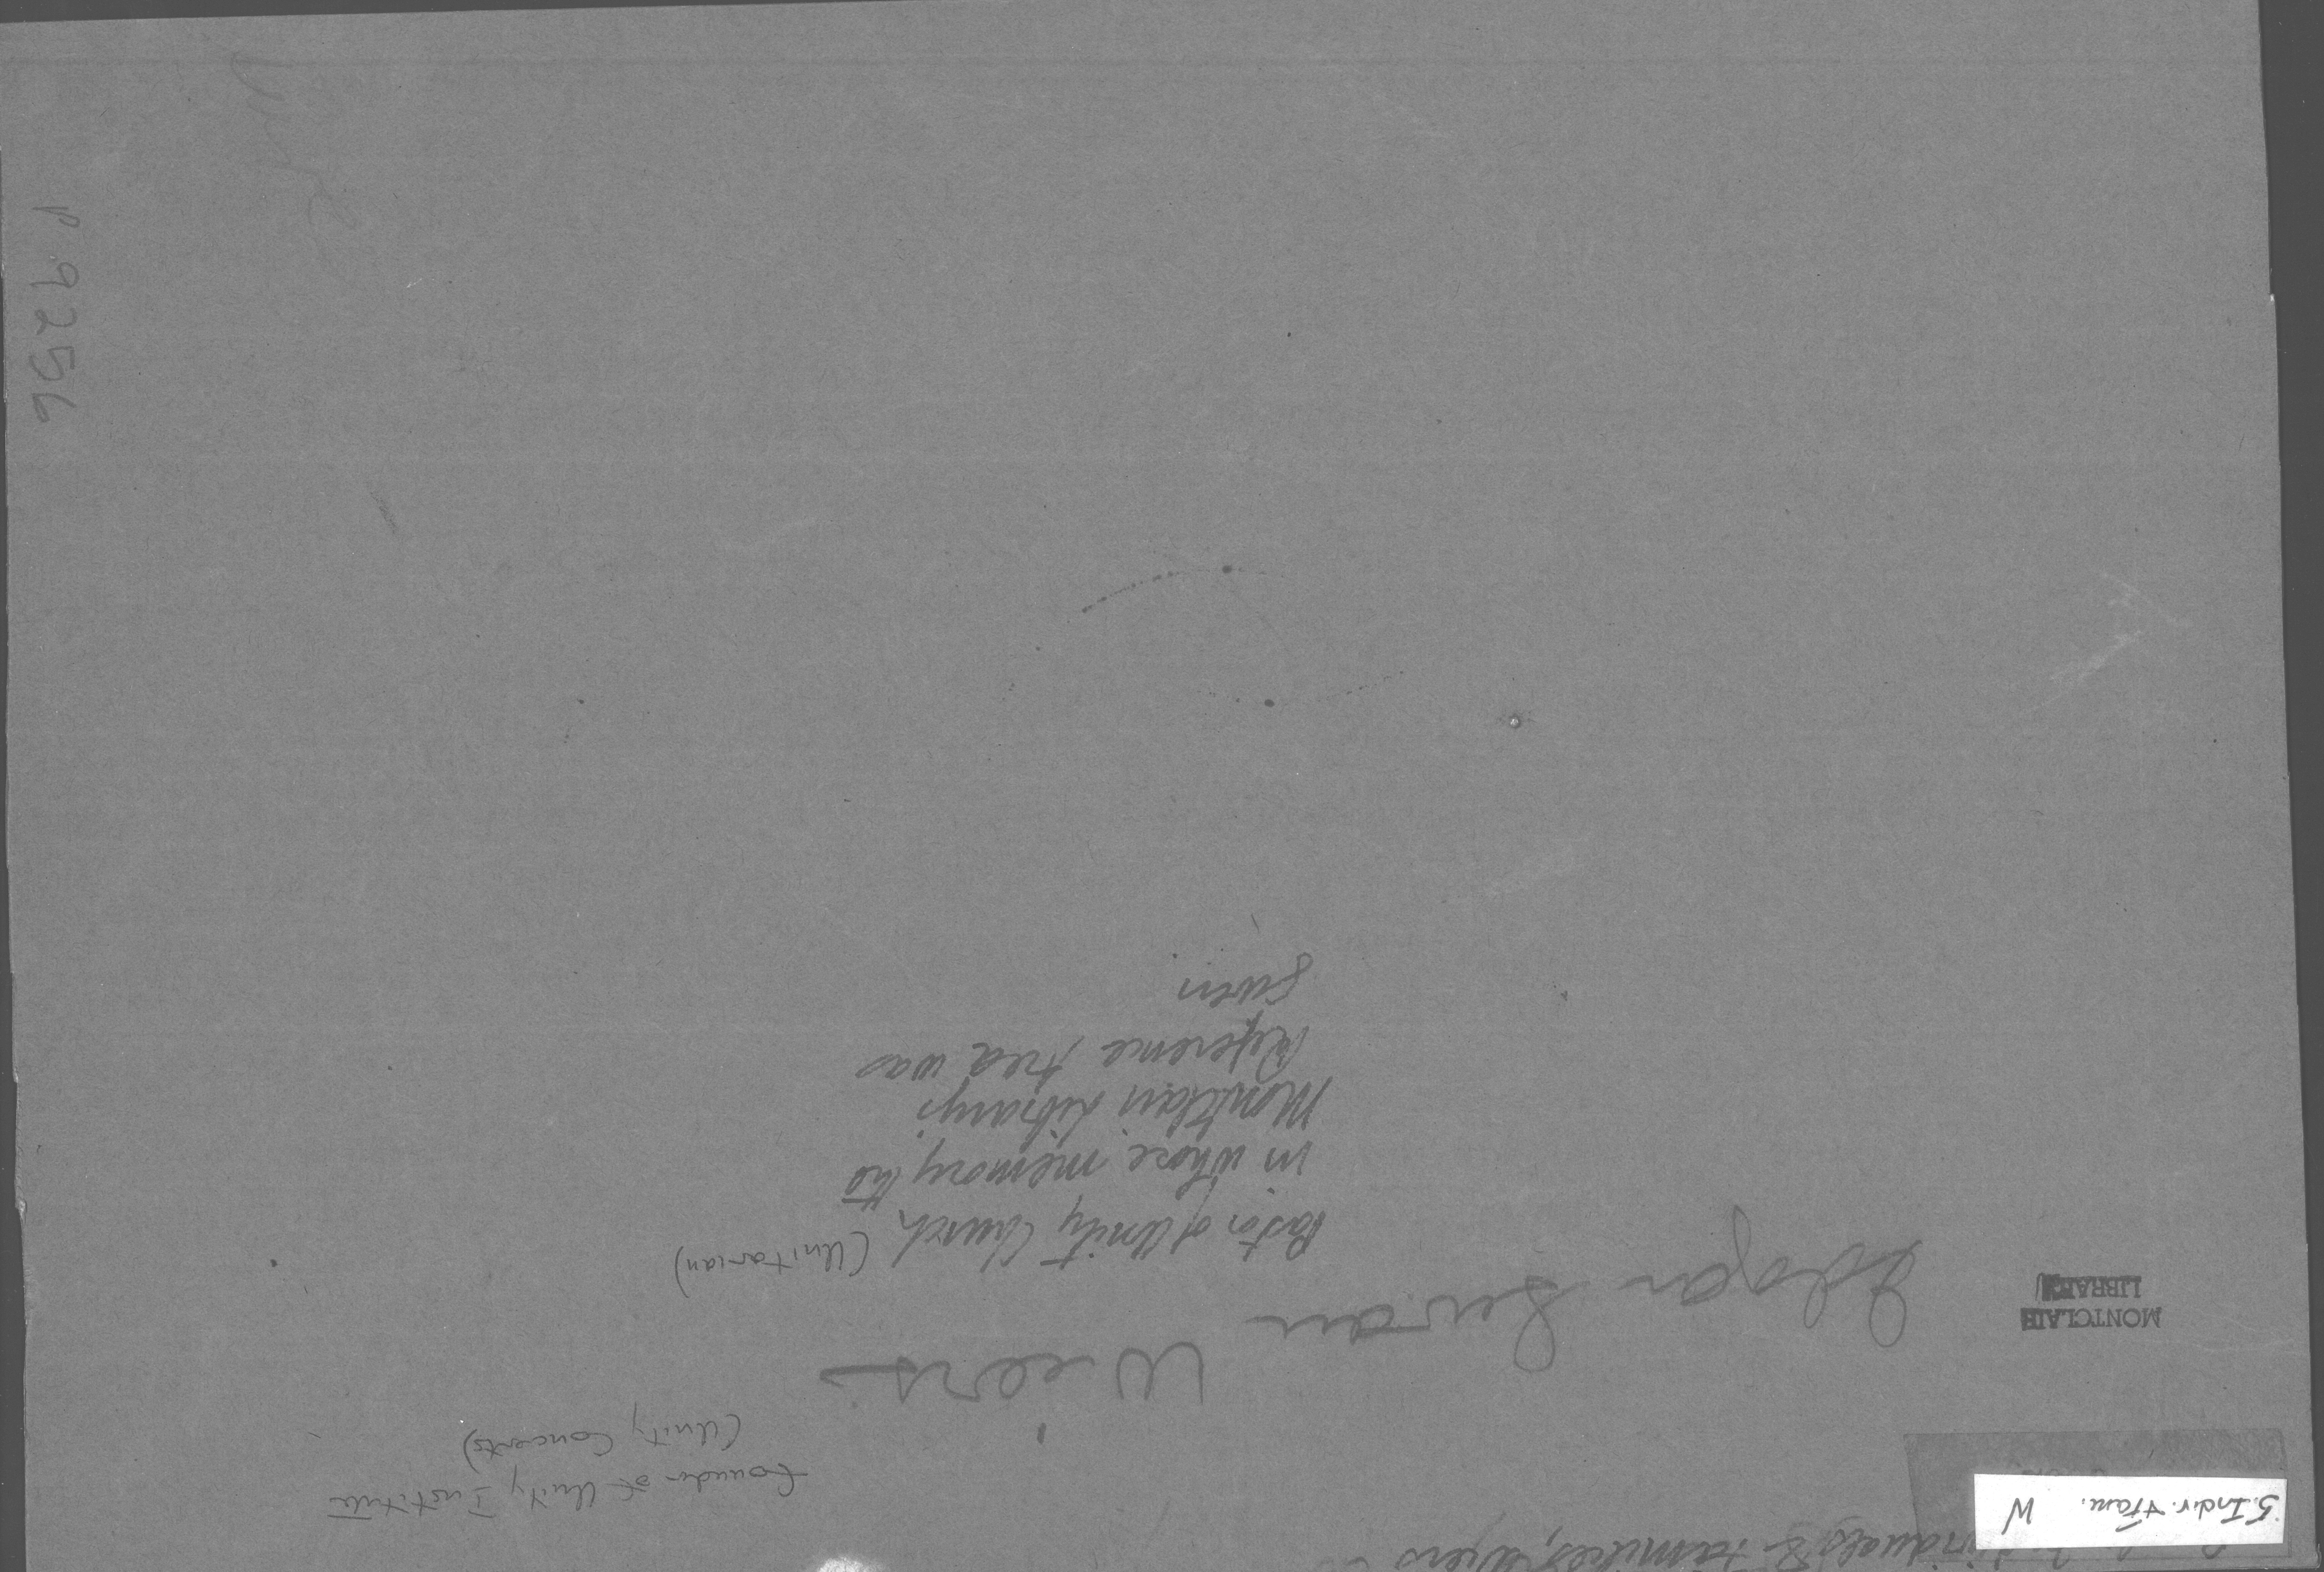 Individuals & Families, Wiers
5. Indiv. + Fam. W
Founder of Unity Institute
(Unity Concerts)
MONTCLAIR
LIBRARY
Edgar Swan
Wiers
Pastor of Unity Church (Unitarian)
in whose memory the
Montclair Library's
Reference Area was
given
P 9256